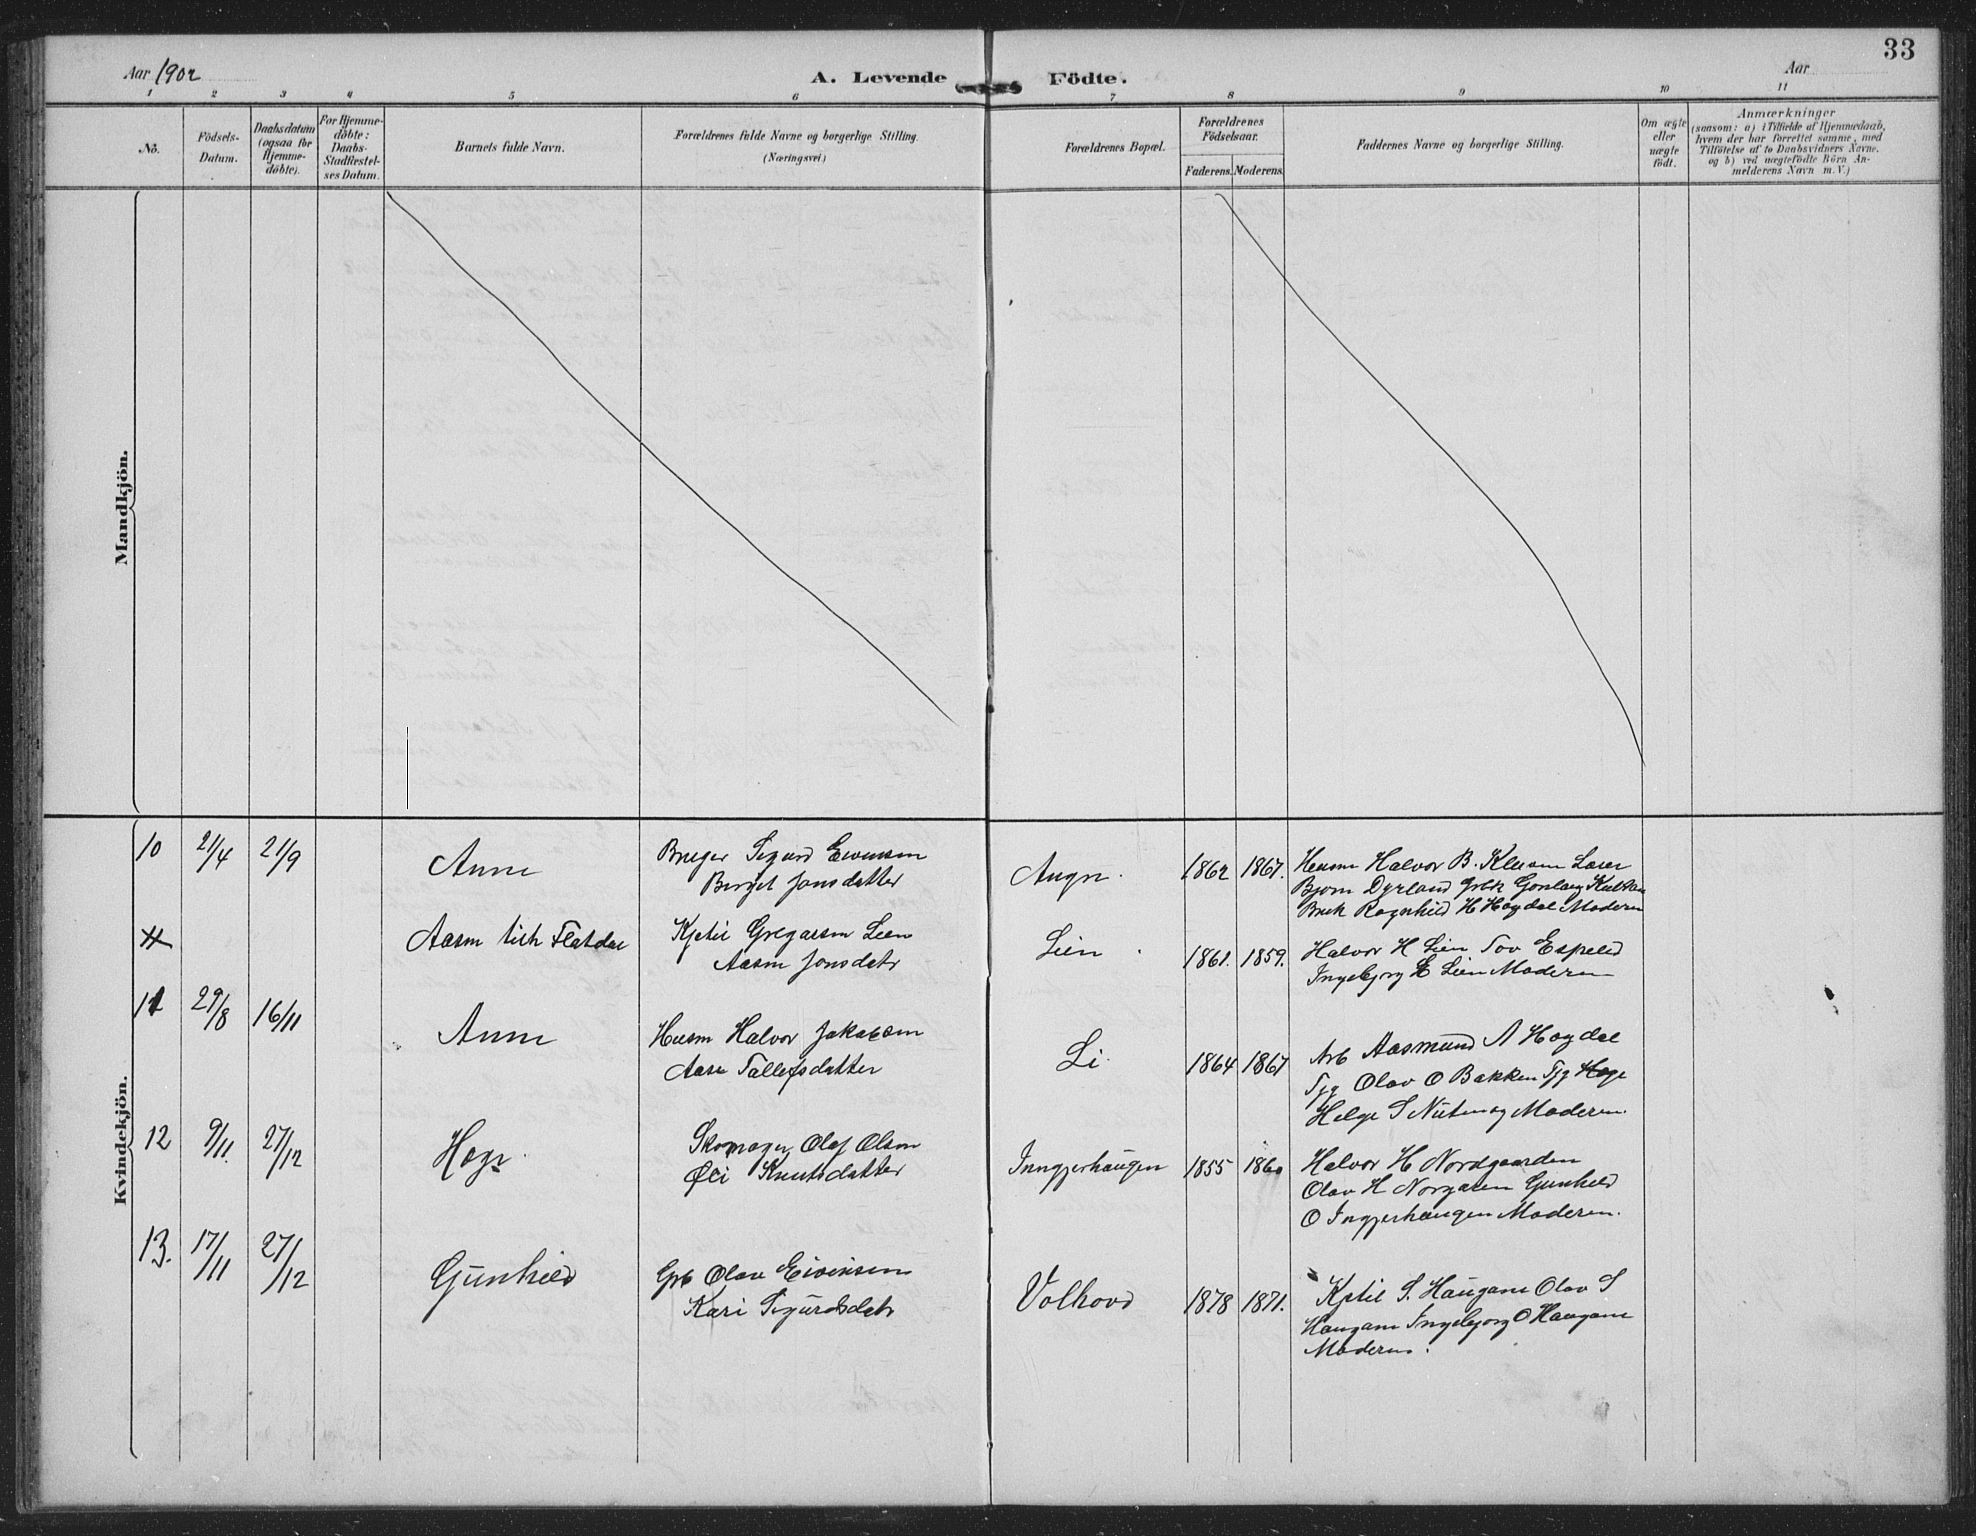 Aar 1902
A. Levende Födte.
Aar
33
1 2 3 4 5 6 7 8 9 10 11
No.
Födsels-Datum.
Daabsdatum (ogsaa for Hjemme-döbte).
For Hjemme-döbte: Daabs-Stadfæstel-ses Datum.
Barnets fulde Navn.
Forældrenes fulde Navne og borgerlige Stilling.
(Næringsvei)
Forældrenes Bopæl.
Forældrenes Födselsaar.
Faderens. Moderens.
Faddernes Navne og borgerlige Stilling.
Om ægte eller uægte födt.
Anmærkninger
(saasom: a) i Tilfælde af Hjemmedaab,
hvem der har forrettet samme, med
Tilföielse af to Daabsvidners Navne.
og b) ved uægtefödte Börn An-
melderens Navn m. V.)
Mandkjön.
Kvindekjön.
10 21/4 21/9 Anne
Bruger Sigurd Evensen
Birgit Jonsdatter
1862 1867.
Husm Halvor B.
Bjorn Dyrland
Bruk Ragnhild H Hogdal Moderen
Kjetil Gregarsen Lien
Aasne Jonsdatr
Lien
1861. 1859.
Halvor H Lien Tov Espelid
Ingebjorg E Lien Moderen
11 29/8 16/11 Anne
Husm Halvor Jakobsen
Aase Tallefsdatter
Li.
1864 1867
Arb Aasmund A Hogdal
Tjg Olav O Bakken Tjg
Helge S Moderen.
12 9/11. 27/12 Hoge
Skomager Olaf Olsen
Knutsdatter
Inngjerhaugen
1855 1860
Halvor H Nordgaarden
Olav H Gunhild
O Ingjerhaugen Moderen.
13. 17/11 27/12 Gunhild
Grb Olav Eivensen
Kari Sigurdsdatr
Volhovd
1878 1871.
Kjetil S. Haugane Olav S
Haugane Ingebjorg O Haugane
Moderen.